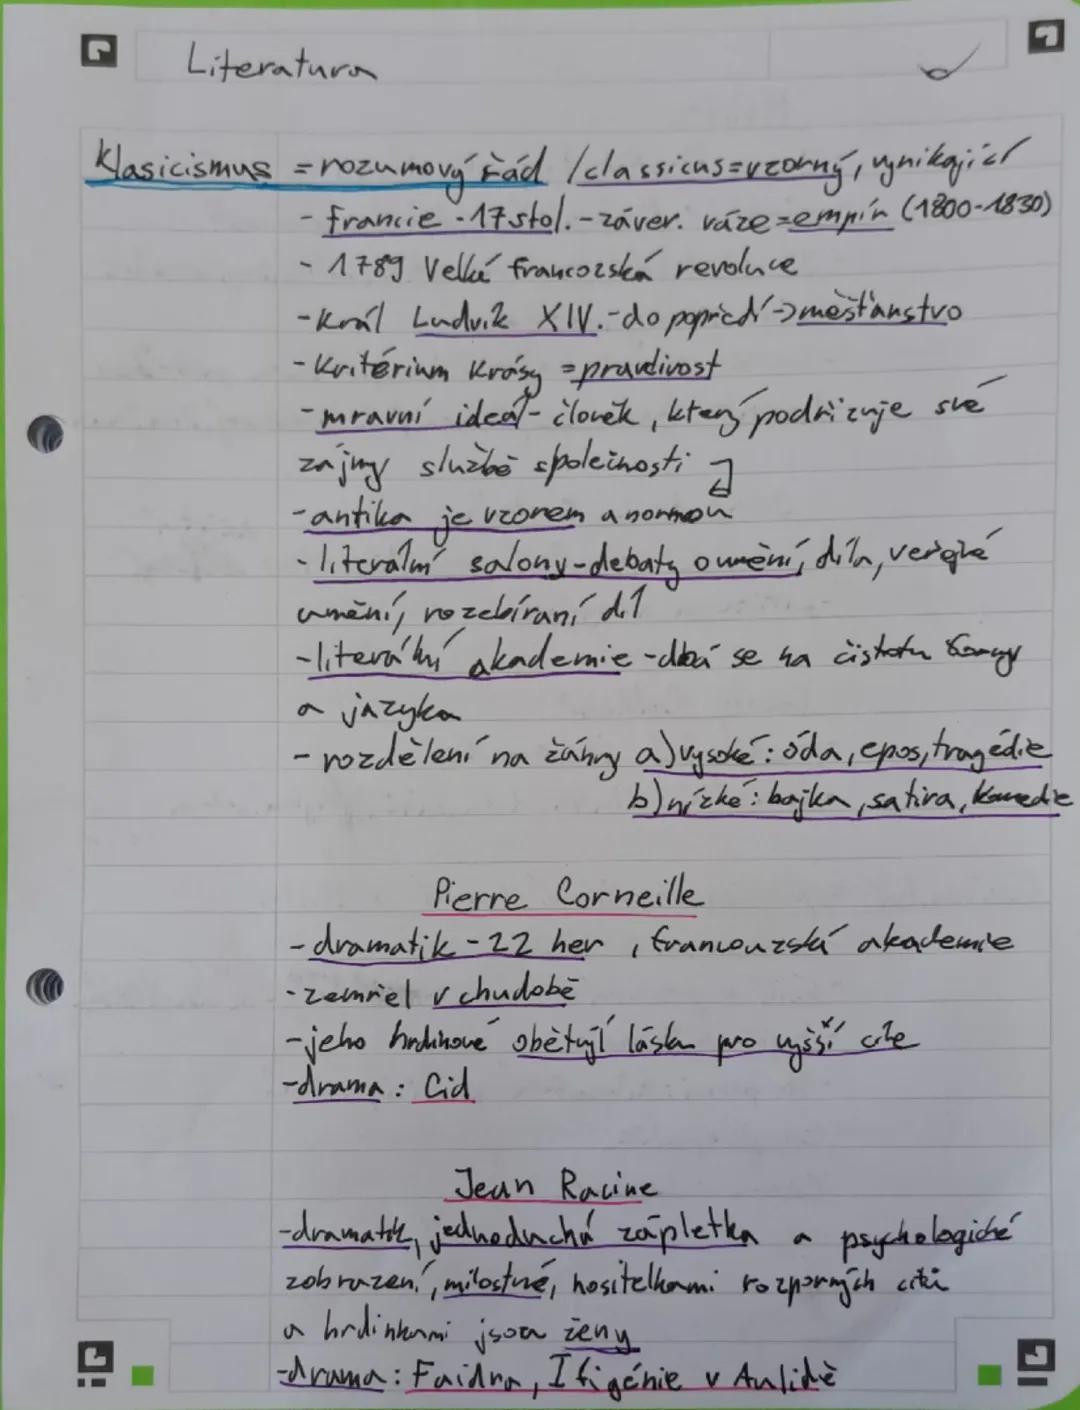 Literatura
Klasicismus = rozumový řád / classicus = vzorný, vynikající
- francie - 17.stol. - závěr. váze = empír (1800-1830)
- 1789 Velká francozská revoluce
- král Ludvík XIV. - do popředí -> měšťanstvo
- kritérium krásy = pravdivost
- mravní ideál - člověk, který podřizuje své
zájmy službě společnosti
- antika je vzorem a normou
- literální salony - debaty o umění, díla, veřejné
umění, rozebíraní děl
- literální akademie - dbá se na čistotu formy
a jazyka
- rozdělení na žánry a) vysoké: óda, epos, tragédie
b) nízké: bajka, satira, komedie
Pierre Corneille
- dramatik - 22 her, francouzská akademie
- zemřel v chudobě
- jeho hrdinové obětují lásku pro vyšší cíle
- drama: Cid
Jean Racine
- dramatik, jednoduchá zápletka a psychologické
zobrazení, milostné, nositelkami rozporných citů
a hrdinkami jsou ženy
- drama: Faidra, Ifigénie v Aulidě